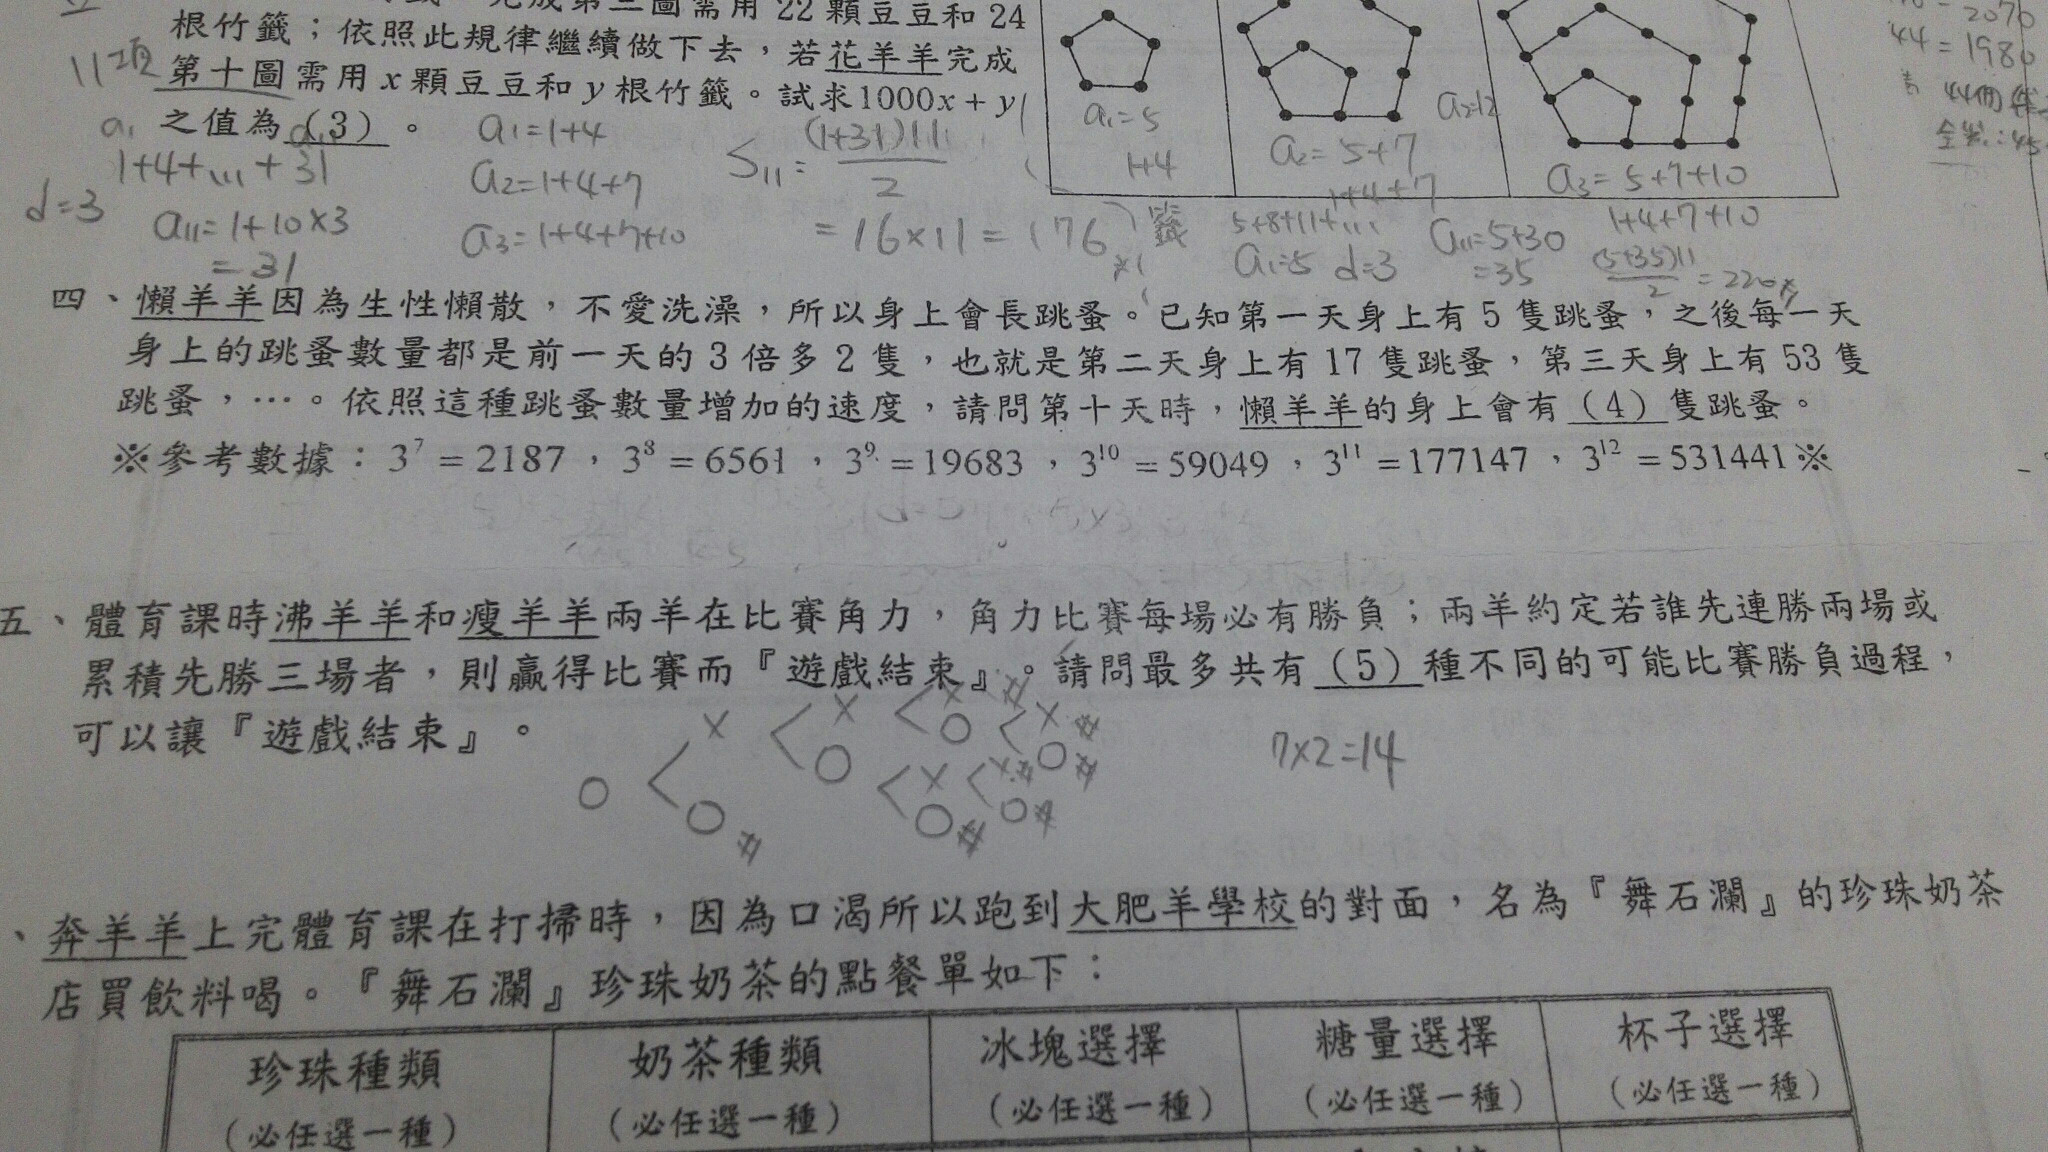 完成第三圖需用 22 顆豆豆和 24
根竹籤；依照此規律繼續做下去，若花羊羊完成
第十圖需用 x 顆豆豆和 y 根竹籤。試求1000x + y
之值為 (3) 。
11項
a₁
1+4+...+31
d=3
a₁₁=1+10×3
=31
a₁=1+4
a₂=1+4+7
a₃=1+4+7+10
S₁₁= (1+31)11 / 2
=16×11=176
籤
a₁=5
1+4
a₂=12
a₂=5+7
1+4+7
a₃=5+7+10
1+4+7+10
5+8+11+...
a₁=5 d=3
a₁₁=5+30
=35
(5+35)11 / 2 =220
2070
44=1980
四、懶羊羊因為生性懶散，不愛洗澡，所以身上會長跳蚤。已知第一天身上有 5 隻跳蚤，之後每一天
身上的跳蚤數量都是前一天的 3 倍多 2 隻，也就是第二天身上有 17 隻跳蚤，第三天身上有 53 隻
跳蚤，…。依照這種跳蚤數量增加的速度，請問第十天時，懶羊羊的身上會有 (4) 隻跳蚤。
※參考數據：3⁷ = 2187，3⁸ = 6561，3⁹ = 19683，3¹⁰ = 59049，3¹¹ = 177147，3¹² = 531441※
五、體育課時沸羊羊和瘦羊羊兩羊在比賽角力，角力比賽每場必有勝負；兩羊約定若誰先連勝兩場或
累積先勝三場者，則贏得比賽而『遊戲結束』。請問最多共有 (5) 種不同的可能比賽勝負過程，
可以讓『遊戲結束』。
7×2=14
、奔羊羊上完體育課在打掃時，因為口渴所以跑到大肥羊學校的對面，名為『舞石瀾』的珍珠奶茶
店買飲料喝。『舞石瀾』珍珠奶茶的點餐單如下：
珍珠種類 奶茶種類 冰塊選擇 糖量選擇 杯子選擇
(必任選一種) (必任選一種) (必任選一種) (必任選一種) (必任選一種)